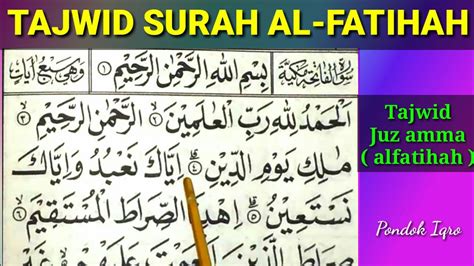 TAJWID SURAH AL-FATIHAH
سورة الفاتحة مكية
بِسْمِ اللهِ الرَّحْمٰنِ الرَّحِيْمِ ۝١
وهي سبع آيات
اَلْحَمْدُ لِلّٰهِ رَبِّ الْعٰلَمِيْنَ ۝٢ الرَّحْمٰنِ الرَّحِيْمِ ۝٣
مٰلِكِ يَوْمِ الدِّيْنِ ۝٤ اِيَّاكَ نَعْبُدُ وَاِيَّاكَ
نَسْتَعِيْنُ ۝٥ اِهْدِنَا الصِّرَاطَ الْمُسْتَقِيْمَ ۝٦
صِرَاطَ الَّذِيْنَ اَنْعَمْتَ عَلَيْهِمْ غَيْرِ
Tajwid
Juz amma
( alfatihah )
Pondok Iqro